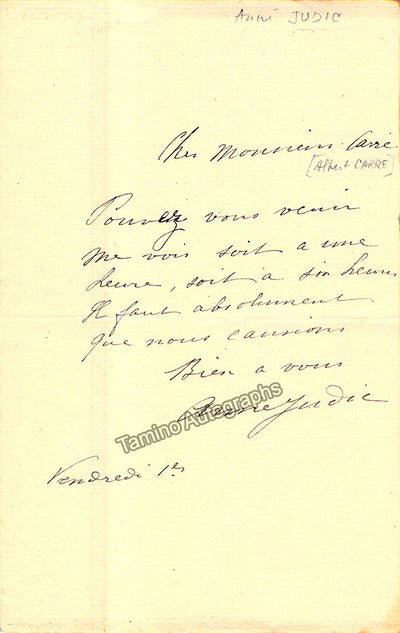 Anne JUDIC
Cher Monsieur Carré
[Albert CARRÉ]
Pouvez vous venir
me voir soit a une
heure, soit a six heures
Il faut absolument
que nous causions
Bien a vous
Anne Judic
Tamino Autographs
Vendredi 1er